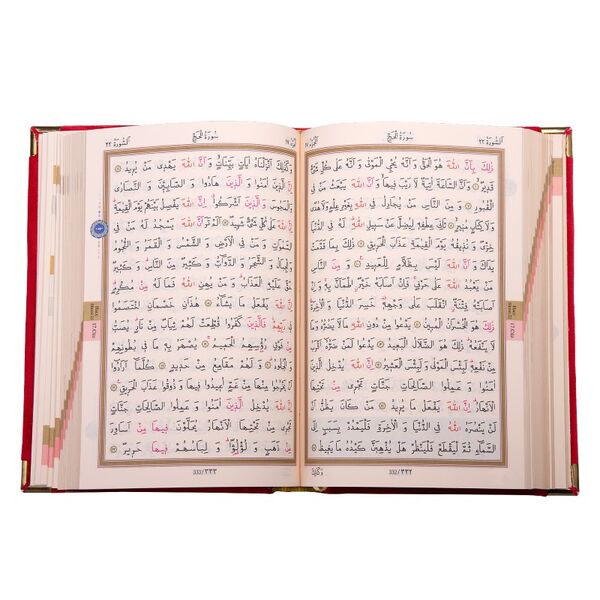 اَلْجُزْءُ ١٧
سُورَةُ الْحَجِّ
اَلسُّورَةُ ٢٢
ذٰلِكَ بِاَنَّ اللّٰهَ هُوَ الْحَقُّ وَاَنَّهُ يُحْيِ الْمَوْتٰى وَاَنَّهُ عَلٰى كُلِّ شَيْءٍ
قَدِيرٌ ۞ وَاَنَّ السَّاعَةَ اٰتِيَةٌ لَا رَيْبَ فِيهَا وَاَنَّ اللّٰهَ يَبْعَثُ مَنْ فِي
الْقُبُورِ ۞ وَمِنَ النَّاسِ مَنْ يُجَادِلُ فِي اللّٰهِ بِغَيْرِ عِلْمٍ وَلَا هُدًى
وَلَا كِتَابٍ مُنِيرٍ ۞ ثَانِيَ عِطْفِهِ لِيُضِلَّ عَنْ سَبِيلِ اللّٰهِ لَهُ فِي الدُّنْيَا
خِزْيٌ وَنُذِيقُهُ يَوْمَ الْقِيٰمَةِ عَذَابَ الْحَرِيقِ ۞ ذٰلِكَ بِمَا قَدَّمَتْ
يَدَاكَ وَاَنَّ اللّٰهَ لَيْسَ بِظَلَّامٍ لِلْعَبِيدِ ۞ وَمِنَ النَّاسِ
مَنْ يَعْبُدُ اللّٰهَ عَلٰى حَرْفٍ فَاِنْ اَصَابَهُ خَيْرٌ اطْمَاَنَّ بِهِ وَاِنْ
اَصَابَتْهُ فِتْنَةٌ انْقَلَبَ عَلٰى وَجْهِهِ خَسِرَ الدُّنْيَا وَالْاٰخِرَةَ
ذٰلِكَ هُوَ الْخُسْرَانُ الْمُبِينُ ۞ يَدْعُوا مِنْ دُونِ اللّٰهِ مَا لَا يَضُرُّهُ وَمَا
لَا يَنْفَعُهُ ذٰلِكَ هُوَ الضَّلَالُ الْبَعِيدُ ۞ يَدْعُوا لَمَنْ ضَرُّهُ اَقْرَبُ
مِنْ نَفْعِهِ لَبِئْسَ الْمَوْلٰى وَلَبِئْسَ الْعَشِيرُ ۞ اِنَّ اللّٰهَ يُدْخِلُ
الَّذِينَ اٰمَنُوا وَعَمِلُوا الصَّالِحَاتِ جَنَّاتٍ تَجْرِي مِنْ تَحْتِهَا
الْاَنْهَارُ اِنَّ اللّٰهَ يَفْعَلُ مَا يُرِيدُ ۞ مَنْ كَانَ يَظُنُّ اَنْ
لَنْ يَنْصُرَهُ اللّٰهُ فِي الدُّنْيَا وَالْاٰخِرَةِ فَلْيَمْدُدْ بِسَبَبٍ اِلَى
السَّمَاءِ ثُمَّ لْيَقْطَعْ فَلْيَنْظُرْ هَلْ يُذْهِبَنَّ كَيْدُهُ مَا يَغِيظُ ۞
332/٣٣٢
وَكَذٰلِكَ
سُورَةُ الْحَجِّ
اَلسُّورَةُ ٢٢
وَكَذٰلِكَ اَنْزَلْنَاهُ اٰيَاتٍ بَيِّنَاتٍ وَاَنَّ اللّٰهَ يَهْدِي مَنْ يُرِيدُ ۞
اِنَّ الَّذِينَ اٰمَنُوا وَالَّذِينَ هَادُوا وَالصَّابِـِٔينَ وَالنَّصَارٰى
وَالْمَجُوسَ وَالَّذِينَ اَشْرَكُوا اِنَّ اللّٰهَ يَفْصِلُ بَيْنَهُمْ يَوْمَ الْقِيٰمَةِ
اِنَّ اللّٰهَ عَلٰى كُلِّ شَيْءٍ شَهِيدٌ ۞ اَلَمْ تَرَ اَنَّ اللّٰهَ يَسْجُدُ لَهُ مَنْ فِي
السَّمٰوَاتِ وَمَنْ فِي الْاَرْضِ وَالشَّمْسُ وَالْقَمَرُ وَالنُّجُومُ
وَالْجِبَالُ وَالشَّجَرُ وَالدَّوَابُّ وَكَثِيرٌ مِنَ النَّاسِ وَكَثِيرٌ
حَقَّ عَلَيْهِ الْعَذَابُ وَمَنْ يُهِنِ اللّٰهُ فَمَا لَهُ مِنْ مُكْرِمٍ
اِنَّ اللّٰهَ يَفْعَلُ مَا يَشَاءُ ۞ هٰذَانِ خَصْمَانِ اخْتَصَمُوا
فِي رَبِّهِمْ فَالَّذِينَ كَفَرُوا قُطِّعَتْ لَهُمْ ثِيَابٌ مِنْ نَارٍ يُصَبُّ
مِنْ فَوْقِ رُؤُسِهِمُ الْحَمِيمُ ۞ يُصْهَرُ بِهِ مَا فِي بُطُونِهِمْ
وَالْجُلُودُ ۞ وَلَهُمْ مَقَامِعُ مِنْ حَدِيدٍ ۞ كُلَّمَا اَرَادُوا
اَنْ يَخْرُجُوا مِنْهَا مِنْ غَمٍّ اُعِيدُوا فِيهَا وَذُوقُوا عَذَابَ الْحَرِيقِ ۞
اِنَّ اللّٰهَ يُدْخِلُ الَّذِينَ اٰمَنُوا وَعَمِلُوا الصَّالِحَاتِ جَنَّاتٍ
تَجْرِي مِنْ تَحْتِهَا الْاَنْهَارُ يُحَلَّوْنَ فِيهَا مِنْ اَسَاوِرَ
مِنْ ذَهَبٍ وَلُؤْلُؤًا وَلِبَاسُهُمْ فِيهَا حَرِيرٌ ۞
333/٣٣٣